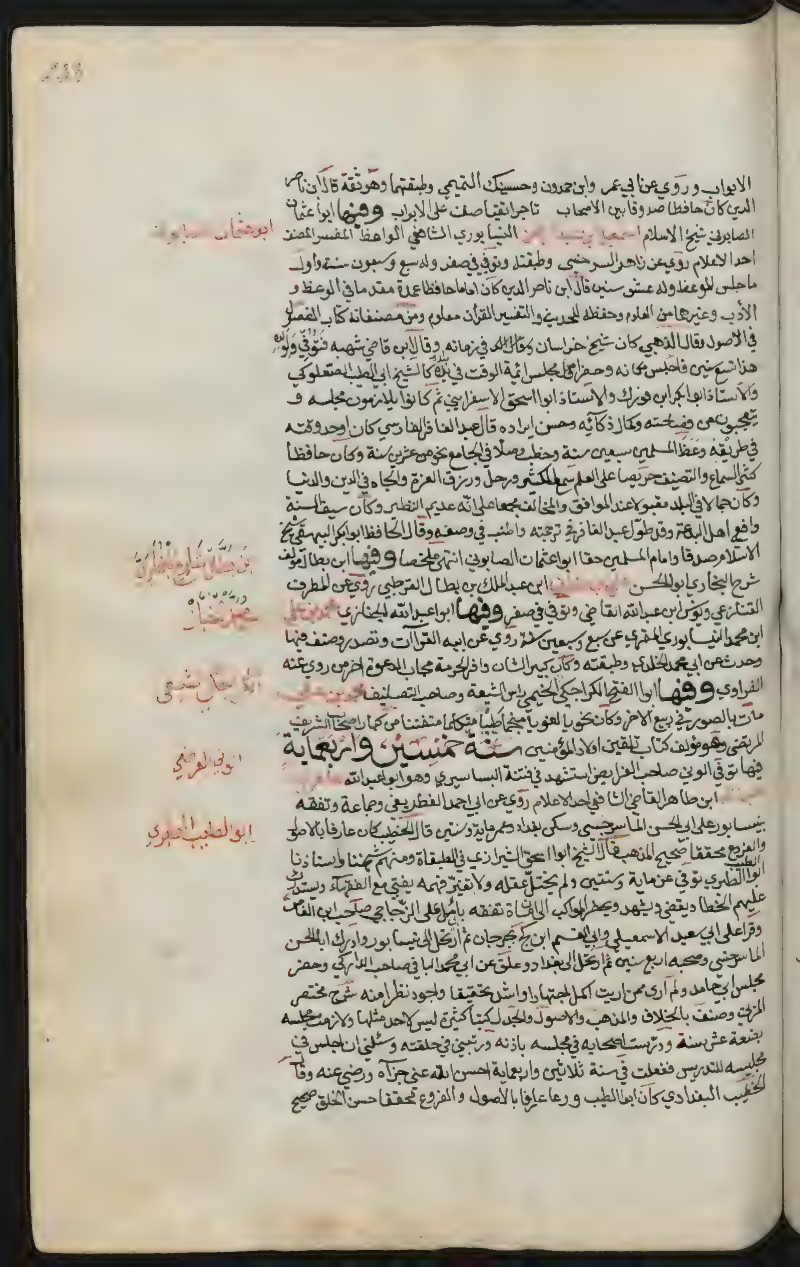 الابواب وروي عن ابي عمر وابن حمدون وحسينك التميمي وطبقتهما وهو ثقة قال ابن ناصر
الدين كان حافظا صدوقا بين الاصحاب تاجرا تقيا صنف على الابواب وفيها ابو عثمان
الصابوني شيخ الاسلام اسمعيل بن عبد الرحمن النيسابوري الشافعي الواعظ المفسر المصنف
احد الاعلام روي عن زاهر السرخسي وطبقته وتوفي في صفر وله سبع وسبعون سنة واول
ما جلس للوعظ وله عشر سنين قال ابن ناصر الدين كان اماما حافظا عمدة مقدما في الوعظ و
الادب وغيرهما من العلوم وحفظه للحديث والتفسير القران معلوم ومن مصنفاته كتاب الفصول
في الاصول وقال الذهبي كان شيخ خراسان في زمانه وقال ابن قاضي شهبه توفي والده
هذا تسع سنين فاجلس مكانه وحضر اول مجلس ائمة الوقت في بلده كالشيخ ابي الطيب الصعلوكي
والاستاذ ابو بكر ابن فورك والاستاذ ابو اسحق الاسفرايني ثم كانوا يلازمون مجلسه و
يتعجبون من فصاحته وكمال ذكائه وحسن ايراده قال عبد الغافر الفارسي كان اوحد وقته
في طريقه وعظ المسلمين سبعين سنة وخطب وصلا في الجامع نحو من عشرين سنة وكان حافظا
كثير السماع والتصنيف حريصا على العلم سمع الكثير ورحل ورزق العزة والجاه في الدين والدنيا
وكان جمالا في البلد مقبولا عند الموافق والمخالف مجمعا على انه عديم النظير وكان سيف السنة
دافع اهل البدعة وقد طول عبد الغافر في ترجمته واطنب في وصفه وقال الحافظ ابو بكر البيهقي شيخ
الاسلام صدقا وامام المسلمين حقا ابو عثمان الصابوني انتهى ملخصا وفيها ابن بطال مولف
شرح البخاري ابو الحسن علي بن خلف ابن عبد الملك بن بطال القرطبي روي عن المطرف
القنازعي ويونس ابن عبد الله القاضي وتوفي في صفر وفيها ابو عبد الله الخبازي محمد بن علي
ابن محمد النيسابوري المقري عن سبع وسبعين سنة روي عن ابيه القراات وتصدر وصنف فيها
وحدث عن ابي محمد المخلدي وطبقته وكان كبير الشان وافر الحرمة مجاب الدعوة اخر من روي عنه
الفراوي وفيها ابو الفتح الكراجكي الخيمي راس الشيعة وصاحب التصانيف محمد بن علي
مات بالصور في ربيع الاخر وكان نحويا لغويا منجما طبيبا متكلما متفننا من كبار اصحاب الشريف
المرتضي وهو مولف كتاب تلقين اولاد المؤمنين سنة خمسين واربعماية
فيها توفي الوني صاحب الفرايض استشهد في فتنة البساسيري وهو ابو عبد الله
ابن طاهر القاضي الشافعي احد الاعلام روي عن ابي احمد الغطريفي وجماعة وتفقه
بنيسابور على ابي الحسن الماسرجسي وسكن بغداد وعمر ماية وسنتين قال الخطيب كان عارفا بالاصول
والفروع محققا صحيح المذهب قال الشيخ ابو اسحق الشيرازي في الطبقات ومنهم شيخنا واستاذنا
ابو الطيب الطبري توفي عن ماية وسنتين ولم يختل عقله ولا تغير فهمه يفتي مع الفقهاء ويستدرك
عليهم الخطا ويقضي ويشهد ويحضر المواكب الى ان مات تفقه بامل على الزجاجي صاحب ابن القاص
وقرا على ابي سعيد الاسمعيلي وابي القسم ابن كج بجرجان ثم ارتحل الى نيسابور وادرك ابا الحسن
الماسرجسي وصحبه اربع سنين ثم ارتحل الى بغداد وعلق عن ابي محمد البافي صاحب الداركي وحضر
مجلس ابي حامد ولم اري ممن رايت اكمل اجتهادا واشد تحقيقا واجود نظرا منه شرح مختصر
المزني وصنف بالخلاف والمذهب والاصول والجدل كتبا كثيرة ليس لاحد مثلها ولازمت مجلسه
بضعة عشر سنة ودرست اصحابه في مجلسه باذنه ورتبني في حلقته وسئلني ان اجلس في
مجلسه للتدريس ففعلت في سنة ثلاثين واربعماية احسن الله عني جزاه ورضي عنه وقال
الخطيب البغدادي كان ابو الطيب ورعا عارفا بالاصول والفروع محققا حسن الخلق صحيح
ابو عثمان الصابوني
ابن بطال شارح البخاري
محمد خباز
الكراجكي شيعي
الوني الفرضي
ابو الطيب الطبري